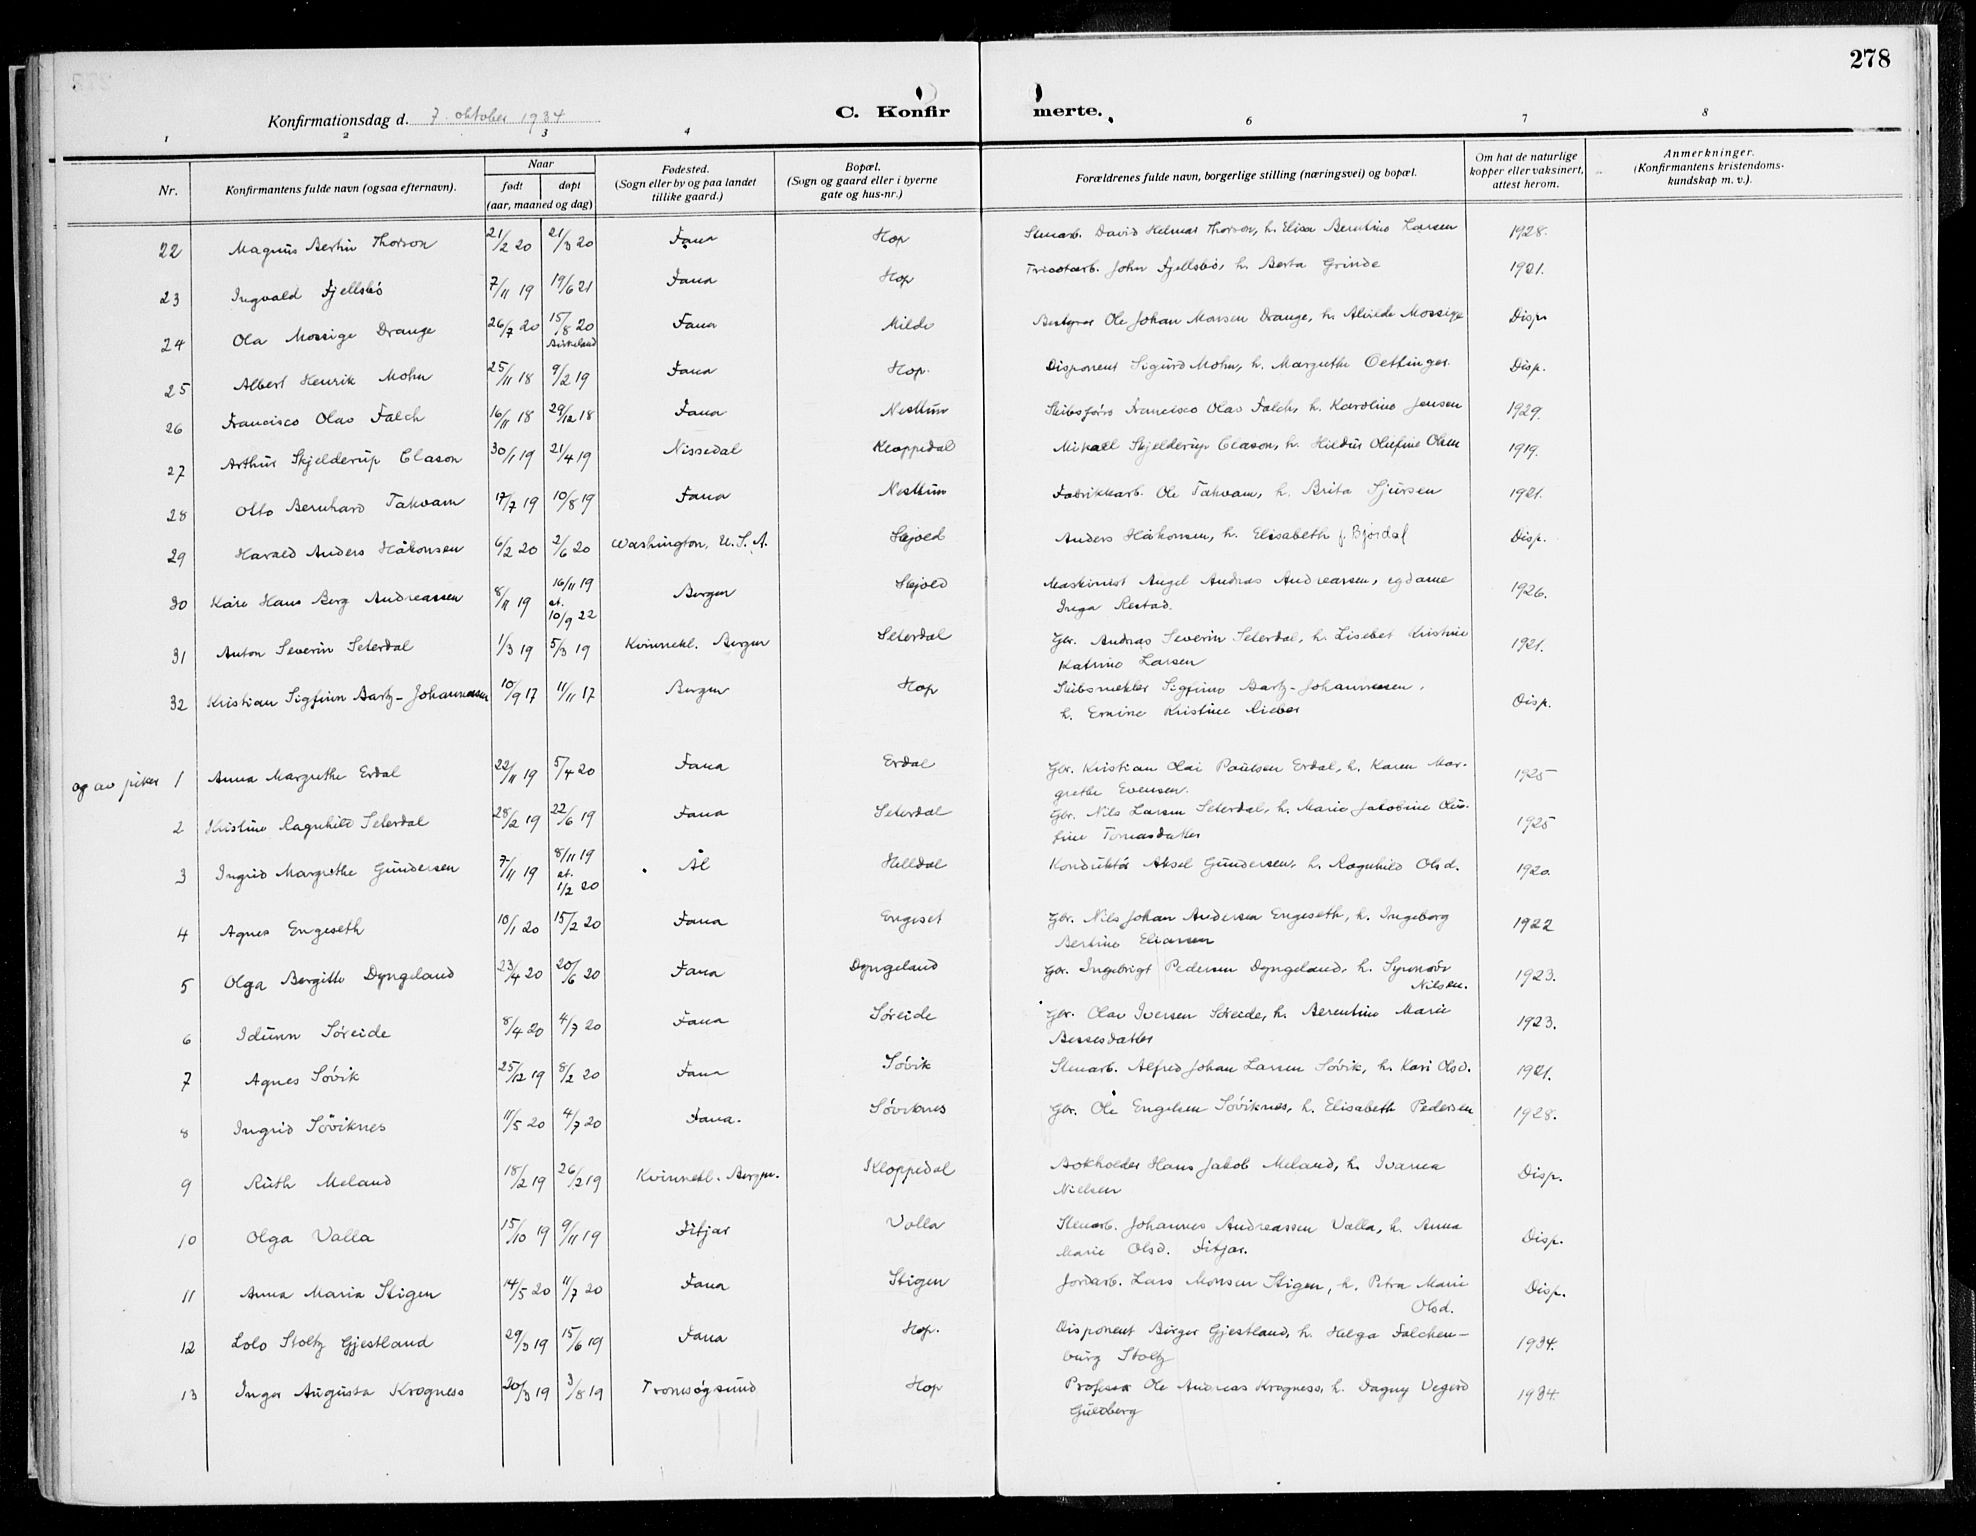 278
Konfirmationsdag d. 7. oktober 1934
C. Konfirmerte.
1 2 3 4 6 7 8
Nr. | Konfirmantens fulde navn (ogsaa efternavn). | Naar født døpt (aar, maaned og dag) | Fødested. (Sogn eller by og paa landet tillike gaard.) | Bopæl. (Sogn og gaard eller i byerne gate og hus-nr.) | Forældrenes fulde navn, borgerlige stilling (næringsvei) og bopæl. | Om hat de naturlige kopper eller vaksinert, attest herom. | Anmerkninger. (Konfirmantens kristendoms-kundskap m. v.).
22 Magnus Bertin Thorson 21/2 20 21/3 20 Fana Hop Stenarb. David Helmer Thorson, h. Elisa Berntine Larsen 1928.
23 Ingvald Fjellsbö 7/11 19 19/6 21 Fana Hop Tricotarb. John Fjellsbö, h. Berta Grinde 1921.
24 Ola Mossige Drange 26/7 20 15/8 20 Birkeland Fana Milde Bestyrer Ole Johan Monsen Drange, h. Alvilde Mossige Disp.
25 Albert Henrik Mohn 25/11 18 9/2 19 Fana Hop. Disponent Sigurd Mohn, h. Margrethe Oettinger. Disp.
26 Francisco Olav Falch 16/11 18 29/12 18 Fana Nesttun Skibsförer Francisco Olav Falch, h. Karoline Jensen 1929.
27 Arthur Skjelderup Clason 30/1 19 21/4 19 Nissedal Kloppedal Mikael Skjelderup Clason, h. Hildur Olufine Olsen 1919.
28 Otto Bernhard Takvam 17/7 19 10/8 19 Fana Nesttun Fabrikkarb. Ole Takvam, h. Brita Sjursen 1921.
29 Harald Anders Håkonsen 6/2 20 2/6 20 Washington, U.S.A. Skjold Anders Håkonsen, h. Elisabeth f. Bjordal Disp.
30 Kåre Hans Berg Andreassen 8/11 19 16/11 19 st. 10/9 22 Bergen Skjold Maskinist Angel Andreas Andreassen, og dame
Inga Restad. 1926.
31 Anton Severin Seterdal 1/3 19 5/3 19 Kvinnekl. Bergen Seterdal Gbr. Andreas Severin Seterdal, h. Lisebet Kristine
Katrine Larsen 1921.
32 Kristian Sigfinn Bartz-Johannessen 10/9 17 11/11 17 Bergen Hop Skibsmekler Sigfinn Bartz-Johannessen,
h. Ermine Kristine Rieber Disp.
og av piker 1 Anna Margrethe Erdal 22/11 19 5/4 20 Fana Erdal Gbr. Kristian Olai Paulsen Erdal, h. Karen Mar-
grethe Evensen. 1925
2 Kristine Ragnhild Seterdal 28/2 19 22/6 19 Fana Seterdal Gbr. Nils Larsen Seterdal, h. Marie Jakobine Olu-
fine Tomasdatter 1925
3 Ingrid Margrethe Gundersen 7/11 19 8/11 19 st. 1/2 20 Ål Helldal Konduktör Aksel Gundersen, h. Ragnhild Olsd. 1920.
4 Agnes Engeseth 10/1 20 15/2 20 Fana Engeset Gbr. Nils Johan Andersen Engeseth, h. Ingeborg
Bertine Eliassen 1922
5 Olga Bergitte Dyngeland 23/4 20 20/6 20 Fana Dyngeland Gbr. Ingebrigt Pedersen Dyngeland, h. Synnöve
Nilsen. 1923.
6 Idunn Søreide 8/4 20 4/7 20 Fana Søreide Gbr. Olav Iversen Søreide, h. Berentine Marie
Bessesdatter 1923.
7 Agnes Søvik 25/12 19 8/2 20 Fana Søvik Stenarb. Alfred Johan Larsen Søvik, h. Kari Olsd. 1921.
8 Ingrid Søviknes 11/5 20 4/7 20 Fana. Søviknes Gbr. Ole Engelsen Søviknes, h. Elisabeth Pedersen 1928.
9 Ruth Meland 18/2 19 26/2 19 Kvinnekl. Bergen. Kloppedal Bokholder Hans Jakob Meland, h. Ivarna
Nielsen Disp.
10 Olga Valla 15/10 19 9/11 19 Fitjar Valla Stenarb. Johannes Andreassen Valla, h. Anna
Marie Olsd. Fitjar. Disp.
11 Anna Maria Stigen 14/5 20 11/7 20 Fana Stigen Jordarb. Lars Monsen Stigen, h. Petra Marie
Olsd. Disp.
12 Lolo Stoltz Gjestland 29/3 19 15/6 19 Fana Hop. Disponent Birger Gjestland, h. Helga Falchen-
burg Stoltz 1934.
13 Inger Augusta Krogness 20/3 19 3/8 19 Tromsøysund Hop Professor Ole Andreas Krogness, h. Dagny Vegerd
Guldberg 1934.